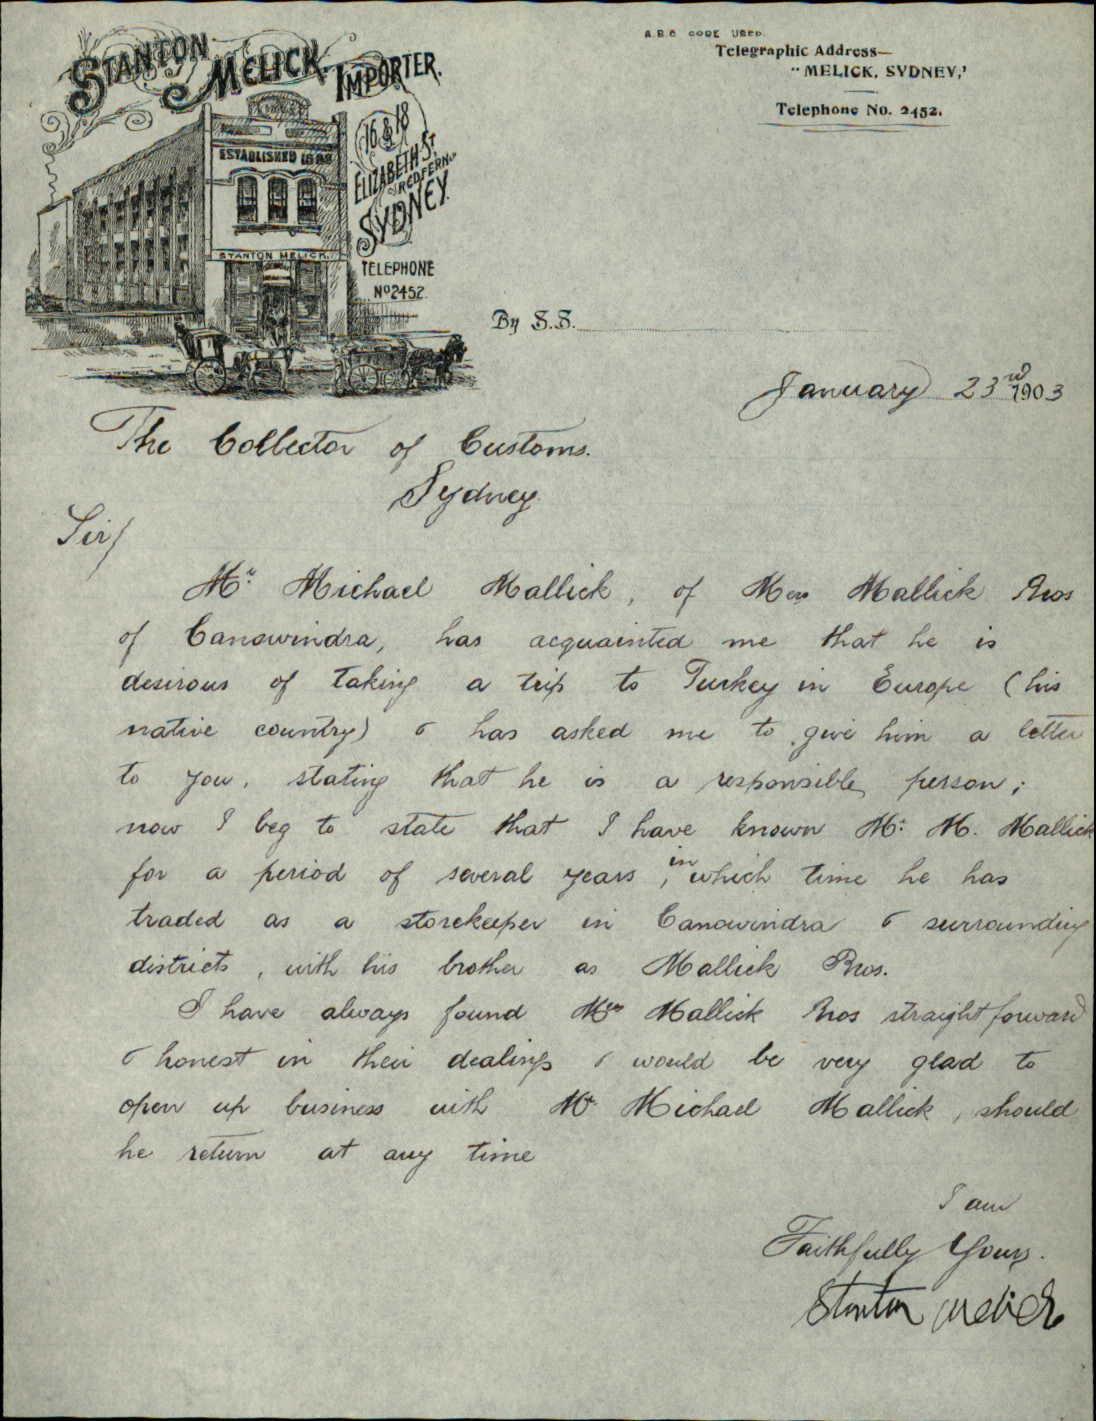 A.B.C CODE USED.
Telegraphic Address—
"MELICK, SYDNEY,'
Telephone No. 2452.
STANTON MELICK. IMPORTER.
16 & 18
ELIZABETH ST.
REDFERN.
SYDNEY.
TELEPHONE
No 2452.
ESTABLISHED
STANTON MELICK.
By S.S.
January 23rd 1903
The Collector of Customs.
Sydney.
Sir/
Mr. Michael Mallick, of Mess Mallick Bros
of Canowindra, has acquainted me that he is
desirous of taking a trip to Turkey in Europe (his
native country) & has asked me to give him a letter
to you, stating that he is a responsible person;
now I beg to state that I have known Mr. M. Mallick
for a period of several years, in which time he has
traded as a storekeeper in Canowindra & surrounding
districts, with his brother as Mallick Bros.
I have always found Mess Mallick Bros straightforward
& honest in their dealings & would be very glad to
open up business with Mr. Michael Mallick, should
he return at any time
I am
Faithfully Yours.
Stanton Melick